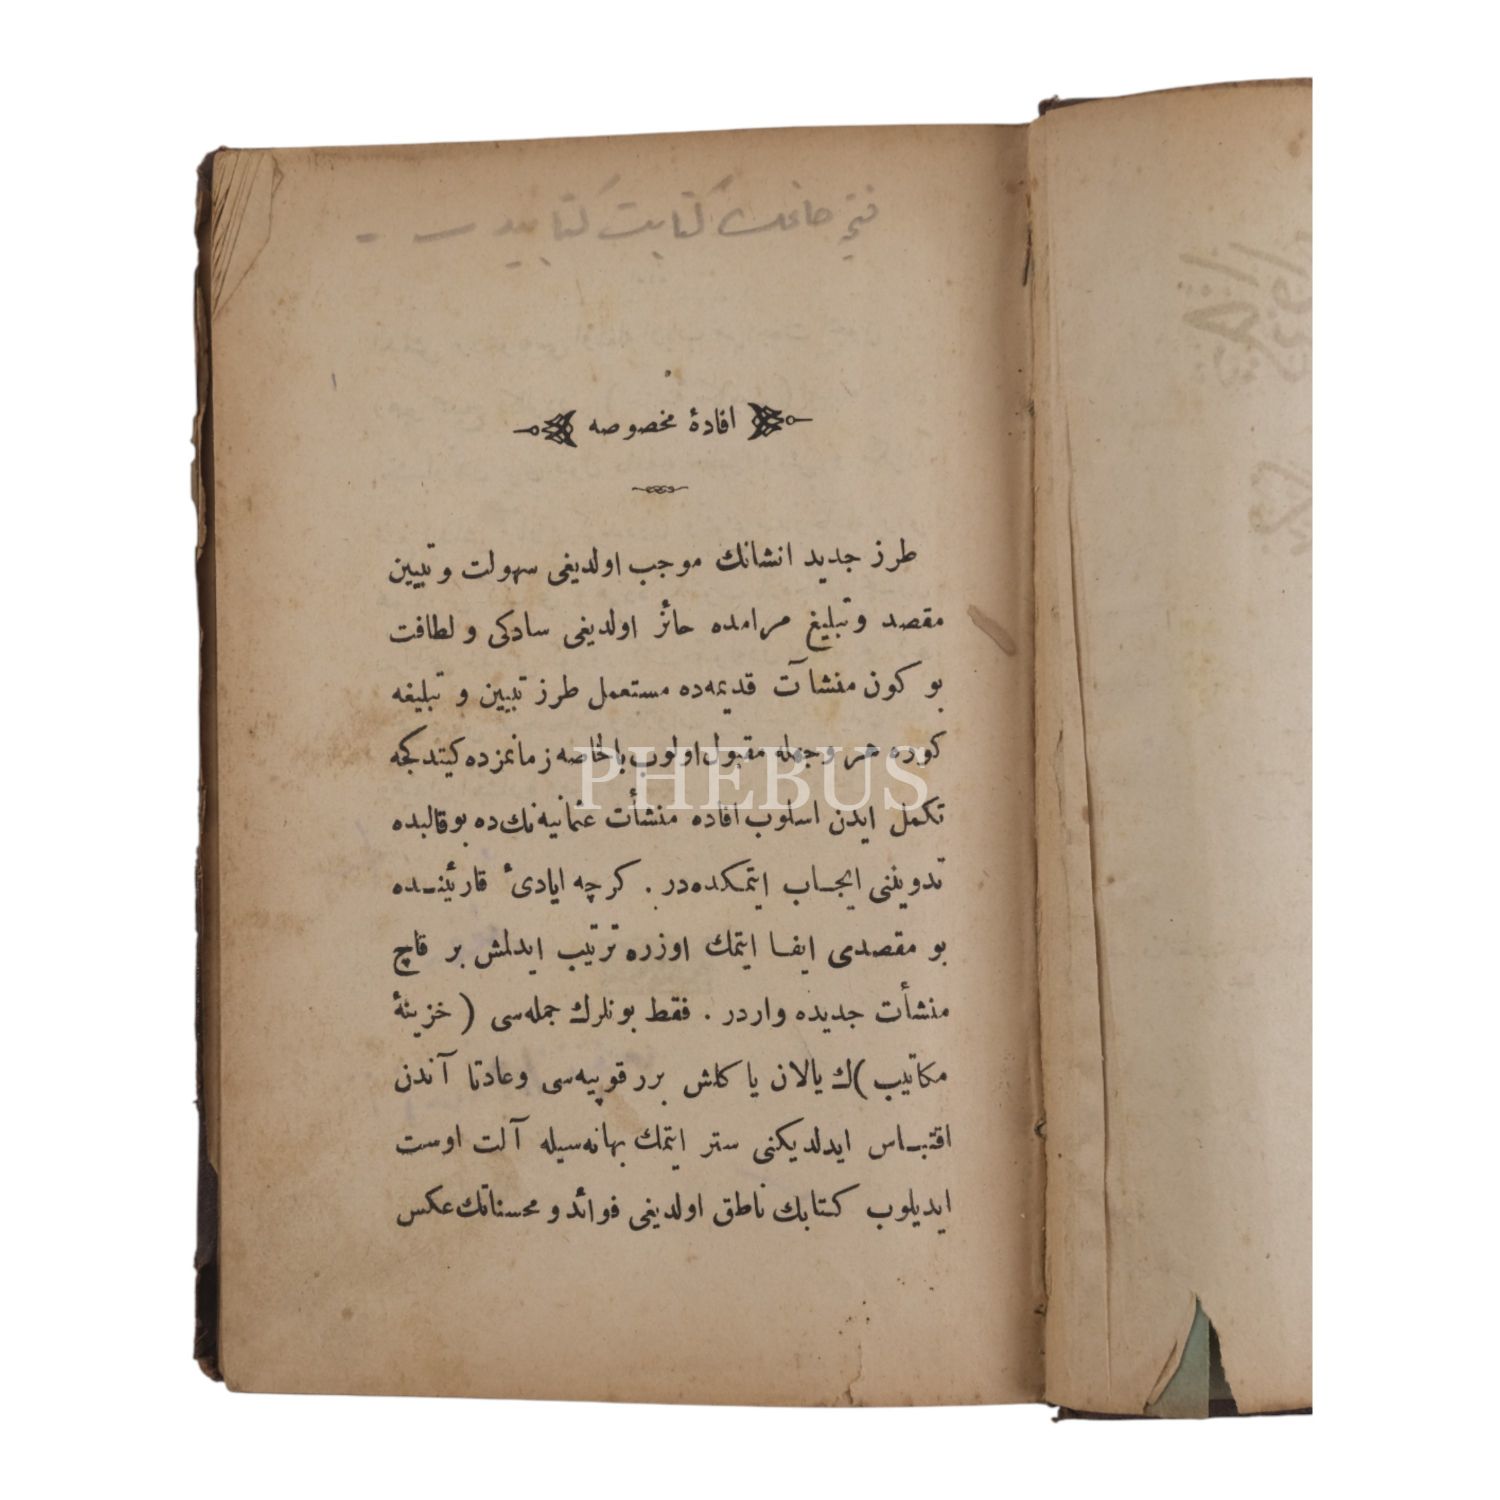 كتابت كتابيدر
افادهٔ مخصوصه
طرز جديد انشانك موجب اولديغى سهولت و تبيين
مقصد و تبليغ مرامده حائز اولديغى سادكى و لطافت
بو كون منشآت قديمه‌ده مستعمل طرز تبيين و تبليغه
كوره هر وجهله مقبول اولوب بالخاصه زمانمزده كيتدكجه
تكمل ايدن اسلوب افاده منشأت عثمانيه‌نك ده بو قالبده
تدويننى ايجـاب ايتمكده‌در . كرچه ايادئ قارئينـده
بو مقصدى ايفـا ايتمك اوزره ترتيب ايدلمش بر قاچ
منشأت جديده واردر . فقط بونلرك جمله‌سى ( خزينهٔ
مكاتيب )ك يالان ياكلش برر قوپيه‌سى و عادتا آندن
اقتبـاس ايدلديكنى ستر ايتمك بهانه‌سيله آلت اوست
ايديلوب كتابك ناطق اولديغى فوائد و محسناتك عكس
PHEBUS